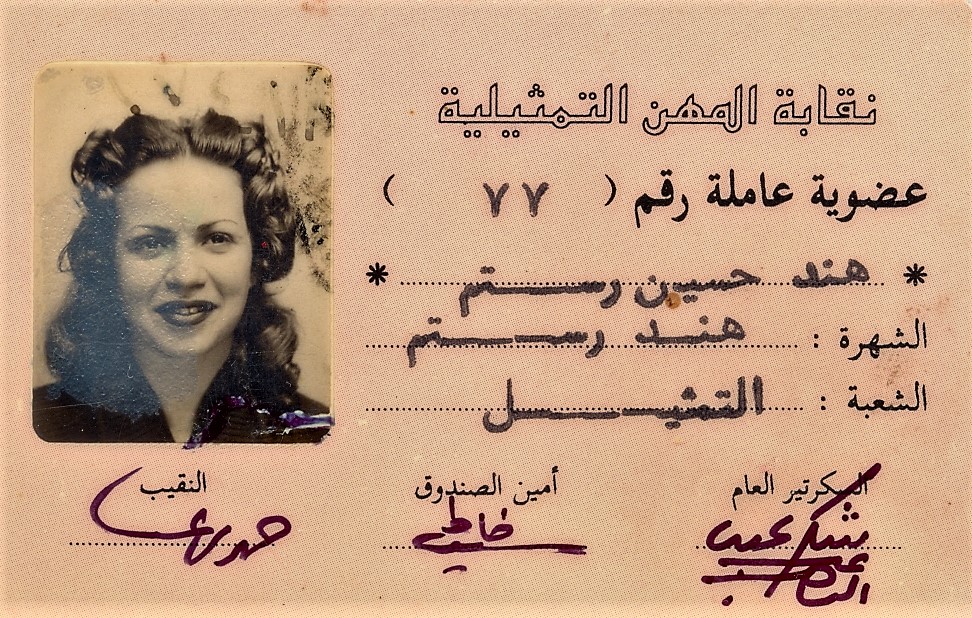 نقابة المهن التمثيلية
عضوية عاملة رقم ( ٧٧ )
* هند حسين رستم *
الشهرة : هند رستم
الشعبة : التمثيل
السكرتير العام أمين الصندوق النقيب